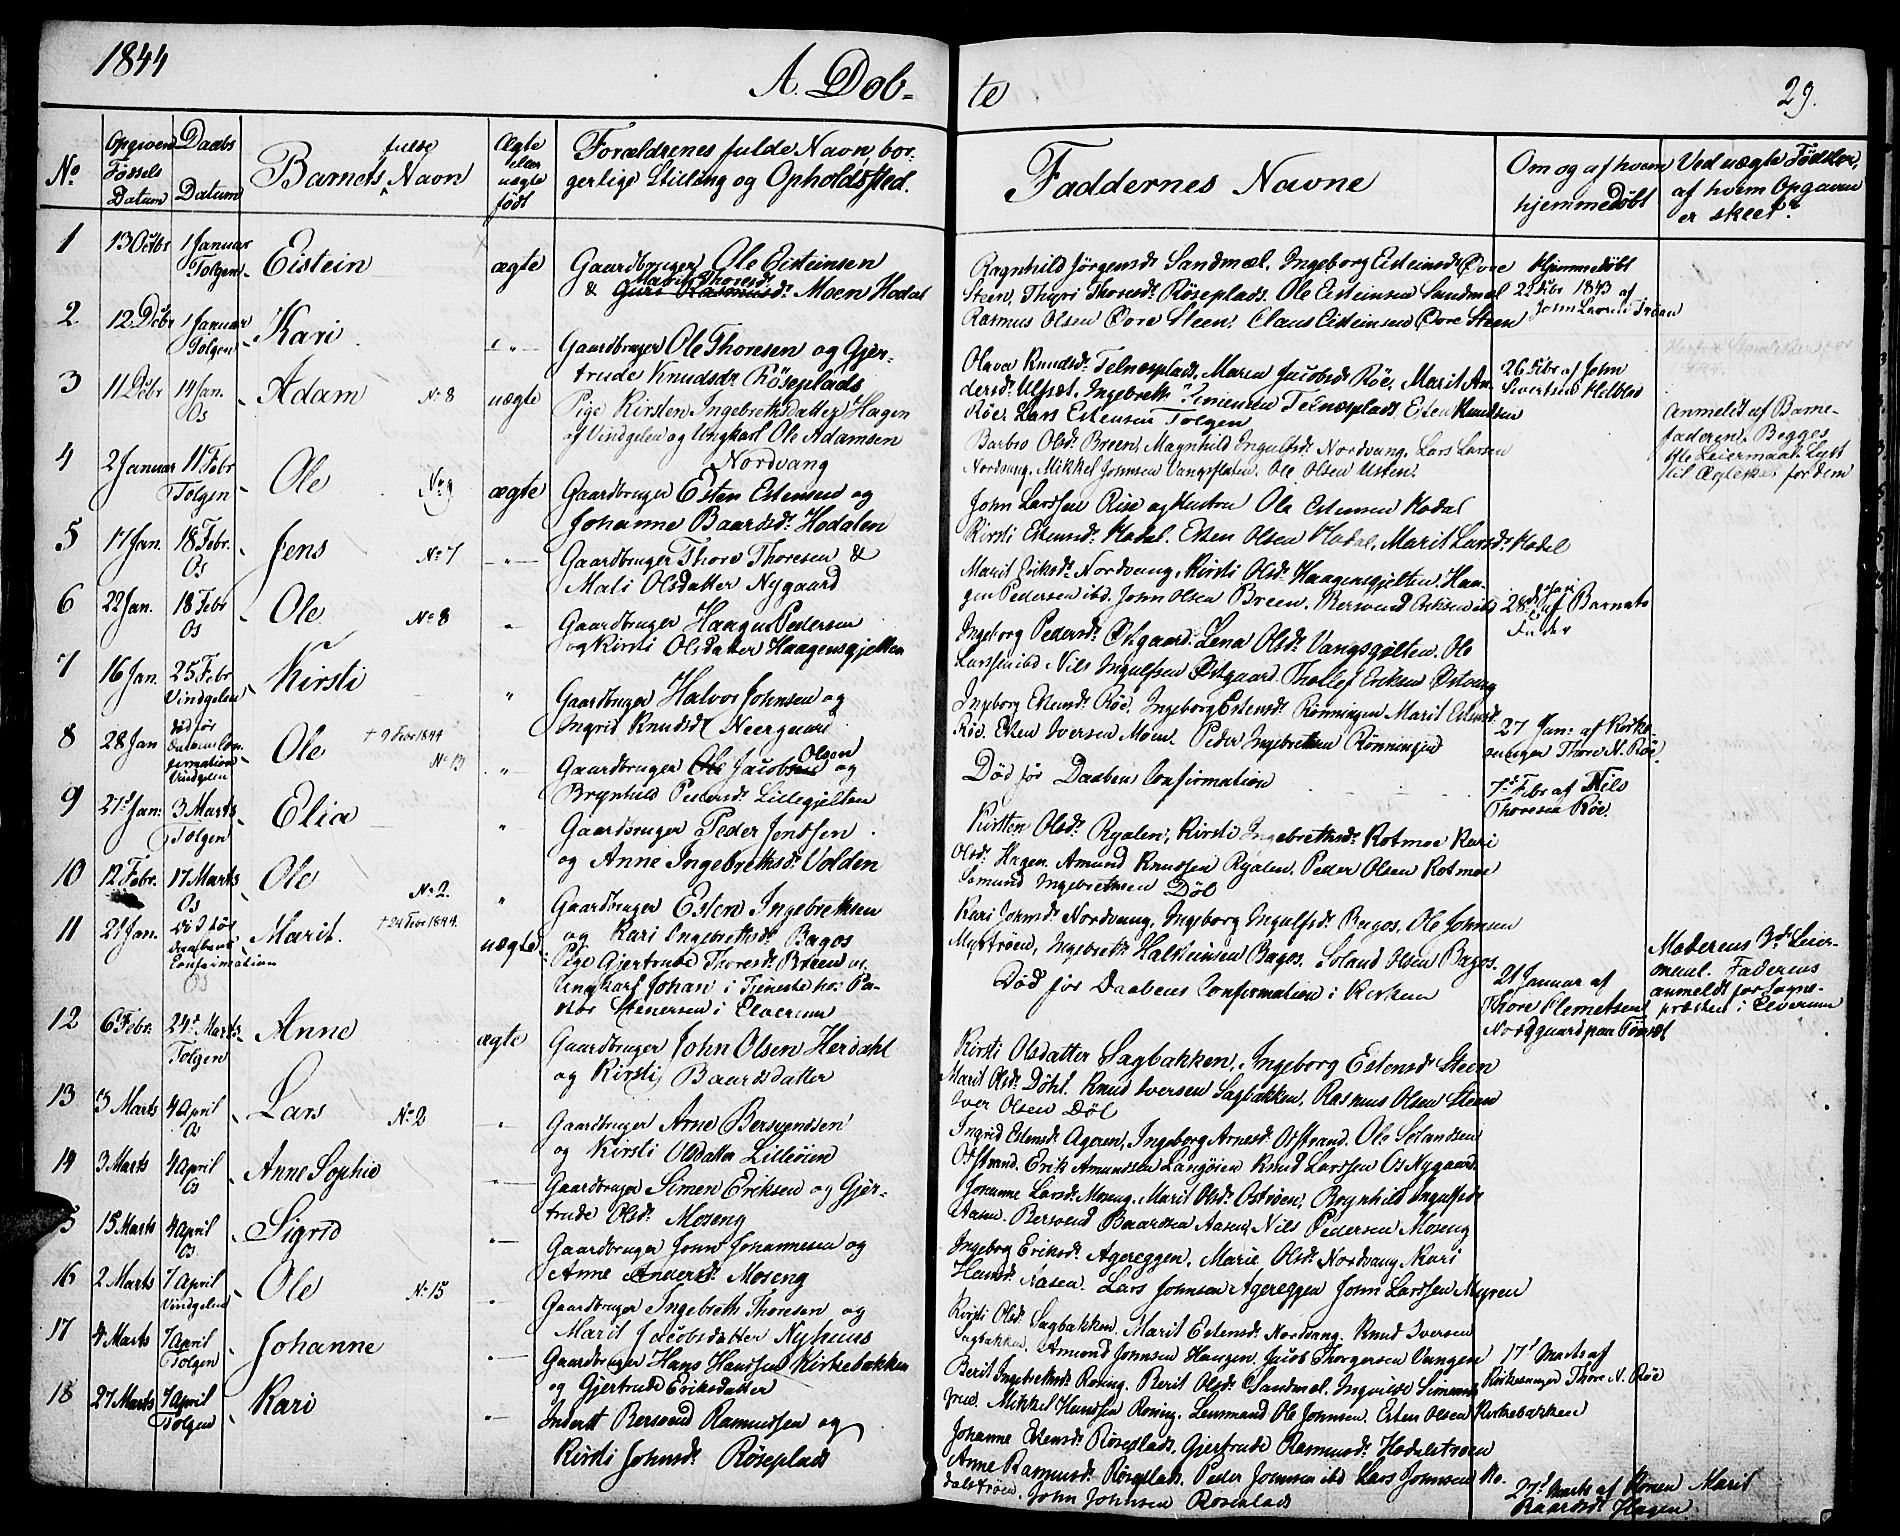 1844
A. Döb-
te
29.
No
Opgiven Fødsels Datum
Daabs Datum
Barnets fulde Navn
Ægte eller uægte født
Forældrenes fulde Navn, bor-
gerlige Stilling og Opholdsted.
Faddernes Navne
Om og af hvem
hjemmedöbt
Ved uægte Födsler,
af hvem Opgaven
er skeet?
1 13 Octbr 1 Januar Tolgen Eistein ægte Gaardbruger Ole Eisteinsen
& Marit Thoresdr Moen Hodal
Ragnhild Jörgensdr Sandmæl, Ingeborg Eisteinsdr Øvre
Steen, Thyri Thoresdr Röseplads. Ole Eisteinsen Sandmæl
Rasmus Olsen Øvre Steen, Claus Eisteinsen Øvre Steen
Hjemmedöbt
1843 af
2 12 Dcbr 1 Januar Tolgen Kari Gaardbruger Ole Thoresen og Gjer-
trude Knudsdr Röseplads
Olava Knudsdr Telnesplads, Maren Jacobsdr Röe, Marit An-
dersdr Ulfset, Ingebreth Simensen Telnesplads, Esten Knudsen
Röe, Lars Estensen Tolgen
26 Dcbr af John
Sivertsen
3 11 Dcbr 14 Jan. Os Adam No 8 uægte Pige Kirsten Ingebrethsdatter Hagen
af Vindgelen og Ungkarl Ole Adamsen
Nordvang
Barbro Olsdr Breen, Magnhild Ingulfsdr Nordvang, Lars Larsen
Nordvang, Mikkel Johnsen Vangsgjelten, Ole Olsen Usten.
Anmeldt af Barne-
faderen. Begges
1ste Leiermaal. Lyst
til Ægteskab for dem
4 2 Januar 11 Febr Tolgen Ole No 9 ægte Gaardbruger Esten Estensen og
Johanne Baardsdr Hodalen
John Larssen Rise og Kustru Ole Estensen Hodal
Kirsti Estensdr Hodal. Esten Olsen Hodal, Marit Larsdr Hodal
5 17 Jan. 18 Febr. Os Jens No 7 Gaardbruger Thore Thoresen &
Mali Olsdatter Nygaard
Marit Eriksdr Nordvang, Kirsti Olsdr Haagensgjelten, Haa-
gen Pedersen ibd. John Olsen Breen. Bersvend Eriksen ibd
6 22 Jan. 18 Febr Os Ole No 8 Gaardbruger Haagen Pedersen
og Kirsti Olsdatter Haagensgjelten
Ingeborg Pedersdr Østgaard. Lena Olsdr Vangsgjelten. Ole
Larssen ibd Nils Ingulfsen Østgaard. Thollef Eriksen Østvang
28de Jan af Barnets
Fader
7 16 Jan. 25 Febr Vindgelen Kirsti Gaardbruger Halvor Johnsen og
Ingrid Knudsdr Neergaard
Ingeborg Estensdr Röe, Ingeborg Estensdr Rönningen Marit Estensdr
Röe. Esten Iversen Moen. Peder Ingebrethsen Rönningen
27 Jan: af Kirke-
sanger Thore N. Röe.
8 28 Jan Död før Daabens Confirmation Vindgelen Ole † 9 Febr 1844 No 13 Gaardbruger Jacob Olsen og
Brynhild Pedersdr Lillegjelten
Død før Daabens Confirmation
7de Febr af Nils
Thoresen Röe.
9 27de Jan: 3 Marts Tolgen Elia Gaardbruger Peder Jonssen
og Anne Ingebrethsdr Volden
Kirsten Olsdr Ryalen, Kirsti Ingebrethsdr Kotmoe Kari
Olsdr Hagen. Amund Knudsen Ryalen. Peder Olsen Kotmoe
Samund Ingebrethsen Döl
10 12 Febr. 17 Marts Os Ole No 2. Gaardbruger Esten Ingebrethsen
og Kari Ingebrethsdr Bagos
Kari Johnsdr Nordvang, Ingeborg Ingulfsdr Bagos, Ole Johnsen
Myrtröen, Ingebreth Halsteinsen Bagos. Soland Olsen Bagos.
11 21 Jan. Død før Daabens Confirmation Os Marit. † 24 Febr 1844. uægte Pige Gjertrude Thoresdr Breen og
Ungkarl Johan i Tjeneste hos Pa-
stor Stenersen i Elverum
Død før Daabens Confirmation i Kirken
21 Januar af
Thore Clemetsen
Nordgaard paa Tönset
Moderens 3de Leier-
maal. Faderens
anmeldt for Sogne-
præsten i Elverum
12 6 Febr: 24de Marts Tolgen Anne ægte Gaardbruger John Olsen Herdahl
og Kirsti Baardsdatter
Kirsti Olsdatter Sagbakken, Ingeborg Estensdr Steen
Marit Olsdr Döhl. Knud Iversen Sagbakken, Rasmus Olsen Steen
Iver Olsen Döl
13 3 Marts 4 April Os Lars No 2 Gaardbruger Arne Bersvendsen
og Kirsti Olsdatter Lilleöien
Ingrid Estensdr Ageren, Ingeborg Arnesdr Osstrand. Ole Solandsen
Osstrand. Erik Amundsen Langöien Knud Larssen Os Nygaard.
14 3 Marts 4 April Os Anne Sophie Gaardbruger Simen Eriksen og Gjer-
trude Olsdr Moseng
Johanne Larsdr Moseng. Marit Olsdr Oströen, Brynhild Ingulfsdr
Aasen. Bersvend Baardsen Aasen, Nils Pedersen Moseng
15 Marts 4 April Os Sigrid Gaardbruger John Johannesen og
Anne Andersdr Moseng
Ingeborg Eriksdr Agereggen, Marie Olsdr Nordvang Kari
Hansdr Aasen. Lars Johnsen Agereggen John Larssen Myren
16 2 Marts 7 April Vindgelen Ole No 15 Gaardbruger Ingebreth Thoresen og
Marit Jacobsdatter Nyhuus
Kirsti Olsdr Sagbakken. Marit Estensdr Nordvang. Knud Iversen
Sagbakken. Amund Johnsen Haugen. Jacob Thorgersen Vangen
17 4 Marts 7 April Tolgen Johanne Gaardbruger Hans Hanssen Kirkebakken
og Gjertrude Eriksdatter
Berit Ingebrethsdr Roning. Berit Olsdr Sandmæl. Ingvilde Simensdr
Mikkel Hanssen Roning. Lensmand Ole Johnsen. Esten Olsen Kirkebakken
17de Marts af
Kirkesanger Thore N. Röe
18 27 Marts 7 April Tolgen Kari Inderst Bersvend Rasmussen og
Kirsti Johnsdr Röseplads
Johanne Estensdr Röseplads, Gjertrude Rasmusdr Hodalströen
Anne Rasmusdr Röseplads. Peder Johnsen ibd Lars Johnsen Ho-
dalströen. John Johnsen Röseplads
27de Marts af Konen Marit
Baardsdr Hagen.